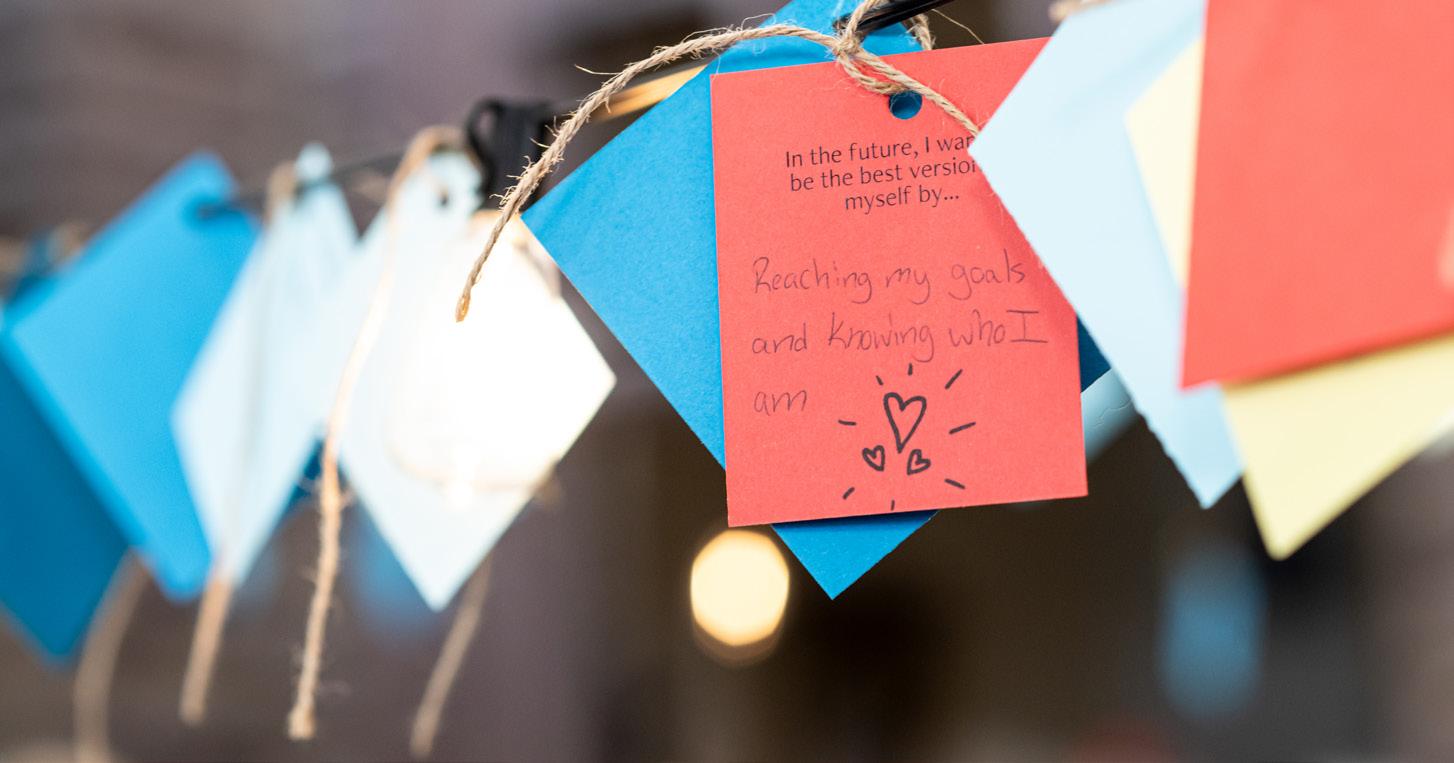 In the future, I wan
be the best version
myself by...
Reaching my goals
and knowing who I
am